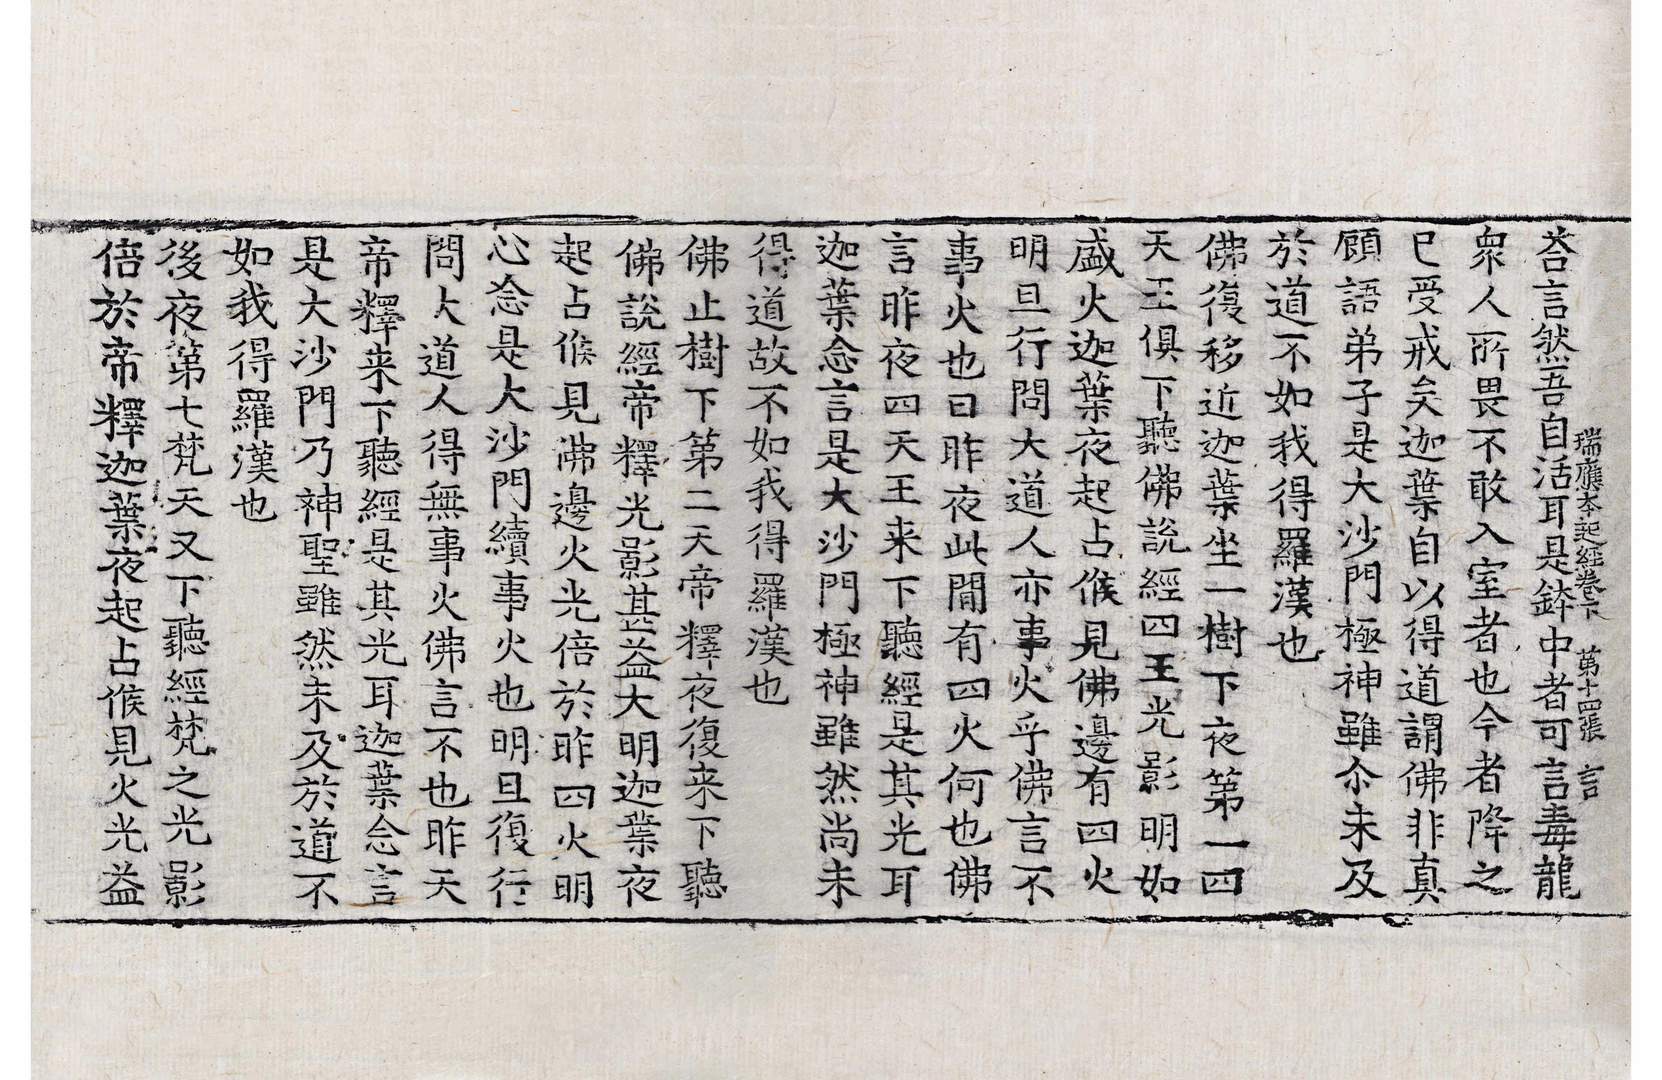 瑞應本起經卷下 第十四張 言
荅言然吾自活耳是鉢中者可言毒龍
衆人所畏不敢入室者也今者降之
已受戒矣迦葉自以得道謂佛非真
顧語弟子是大沙門極神雖尒未及
於道不如我得羅漢也
佛復移近迦葉坐一樹下夜第一四
天王俱下聽佛說經四王光影明如
盛火迦葉夜起占候見佛邊有四火
明旦行問大道人亦事火乎佛言不
事火也曰昨夜此間有四火何也佛
言昨夜四天王来下聽經是其光耳
迦葉念言是大沙門極神雖然尚未
得道故不如我得羅漢也
佛止樹下第二天帝釋夜復来下聽
佛說經帝釋光影甚益大明迦葉夜
起占候見佛邊火光倍於昨四火明
心念是大沙門續事火也明旦復行
問大道人得無事火佛言不也昨天
帝釋来下聽經是其光耳迦葉念言
是大沙門乃神聖雖然未及於道不
如我得羅漢也
後夜第七梵天又下聽經梵之光影
倍於帝釋迦葉夜起占候見火光益